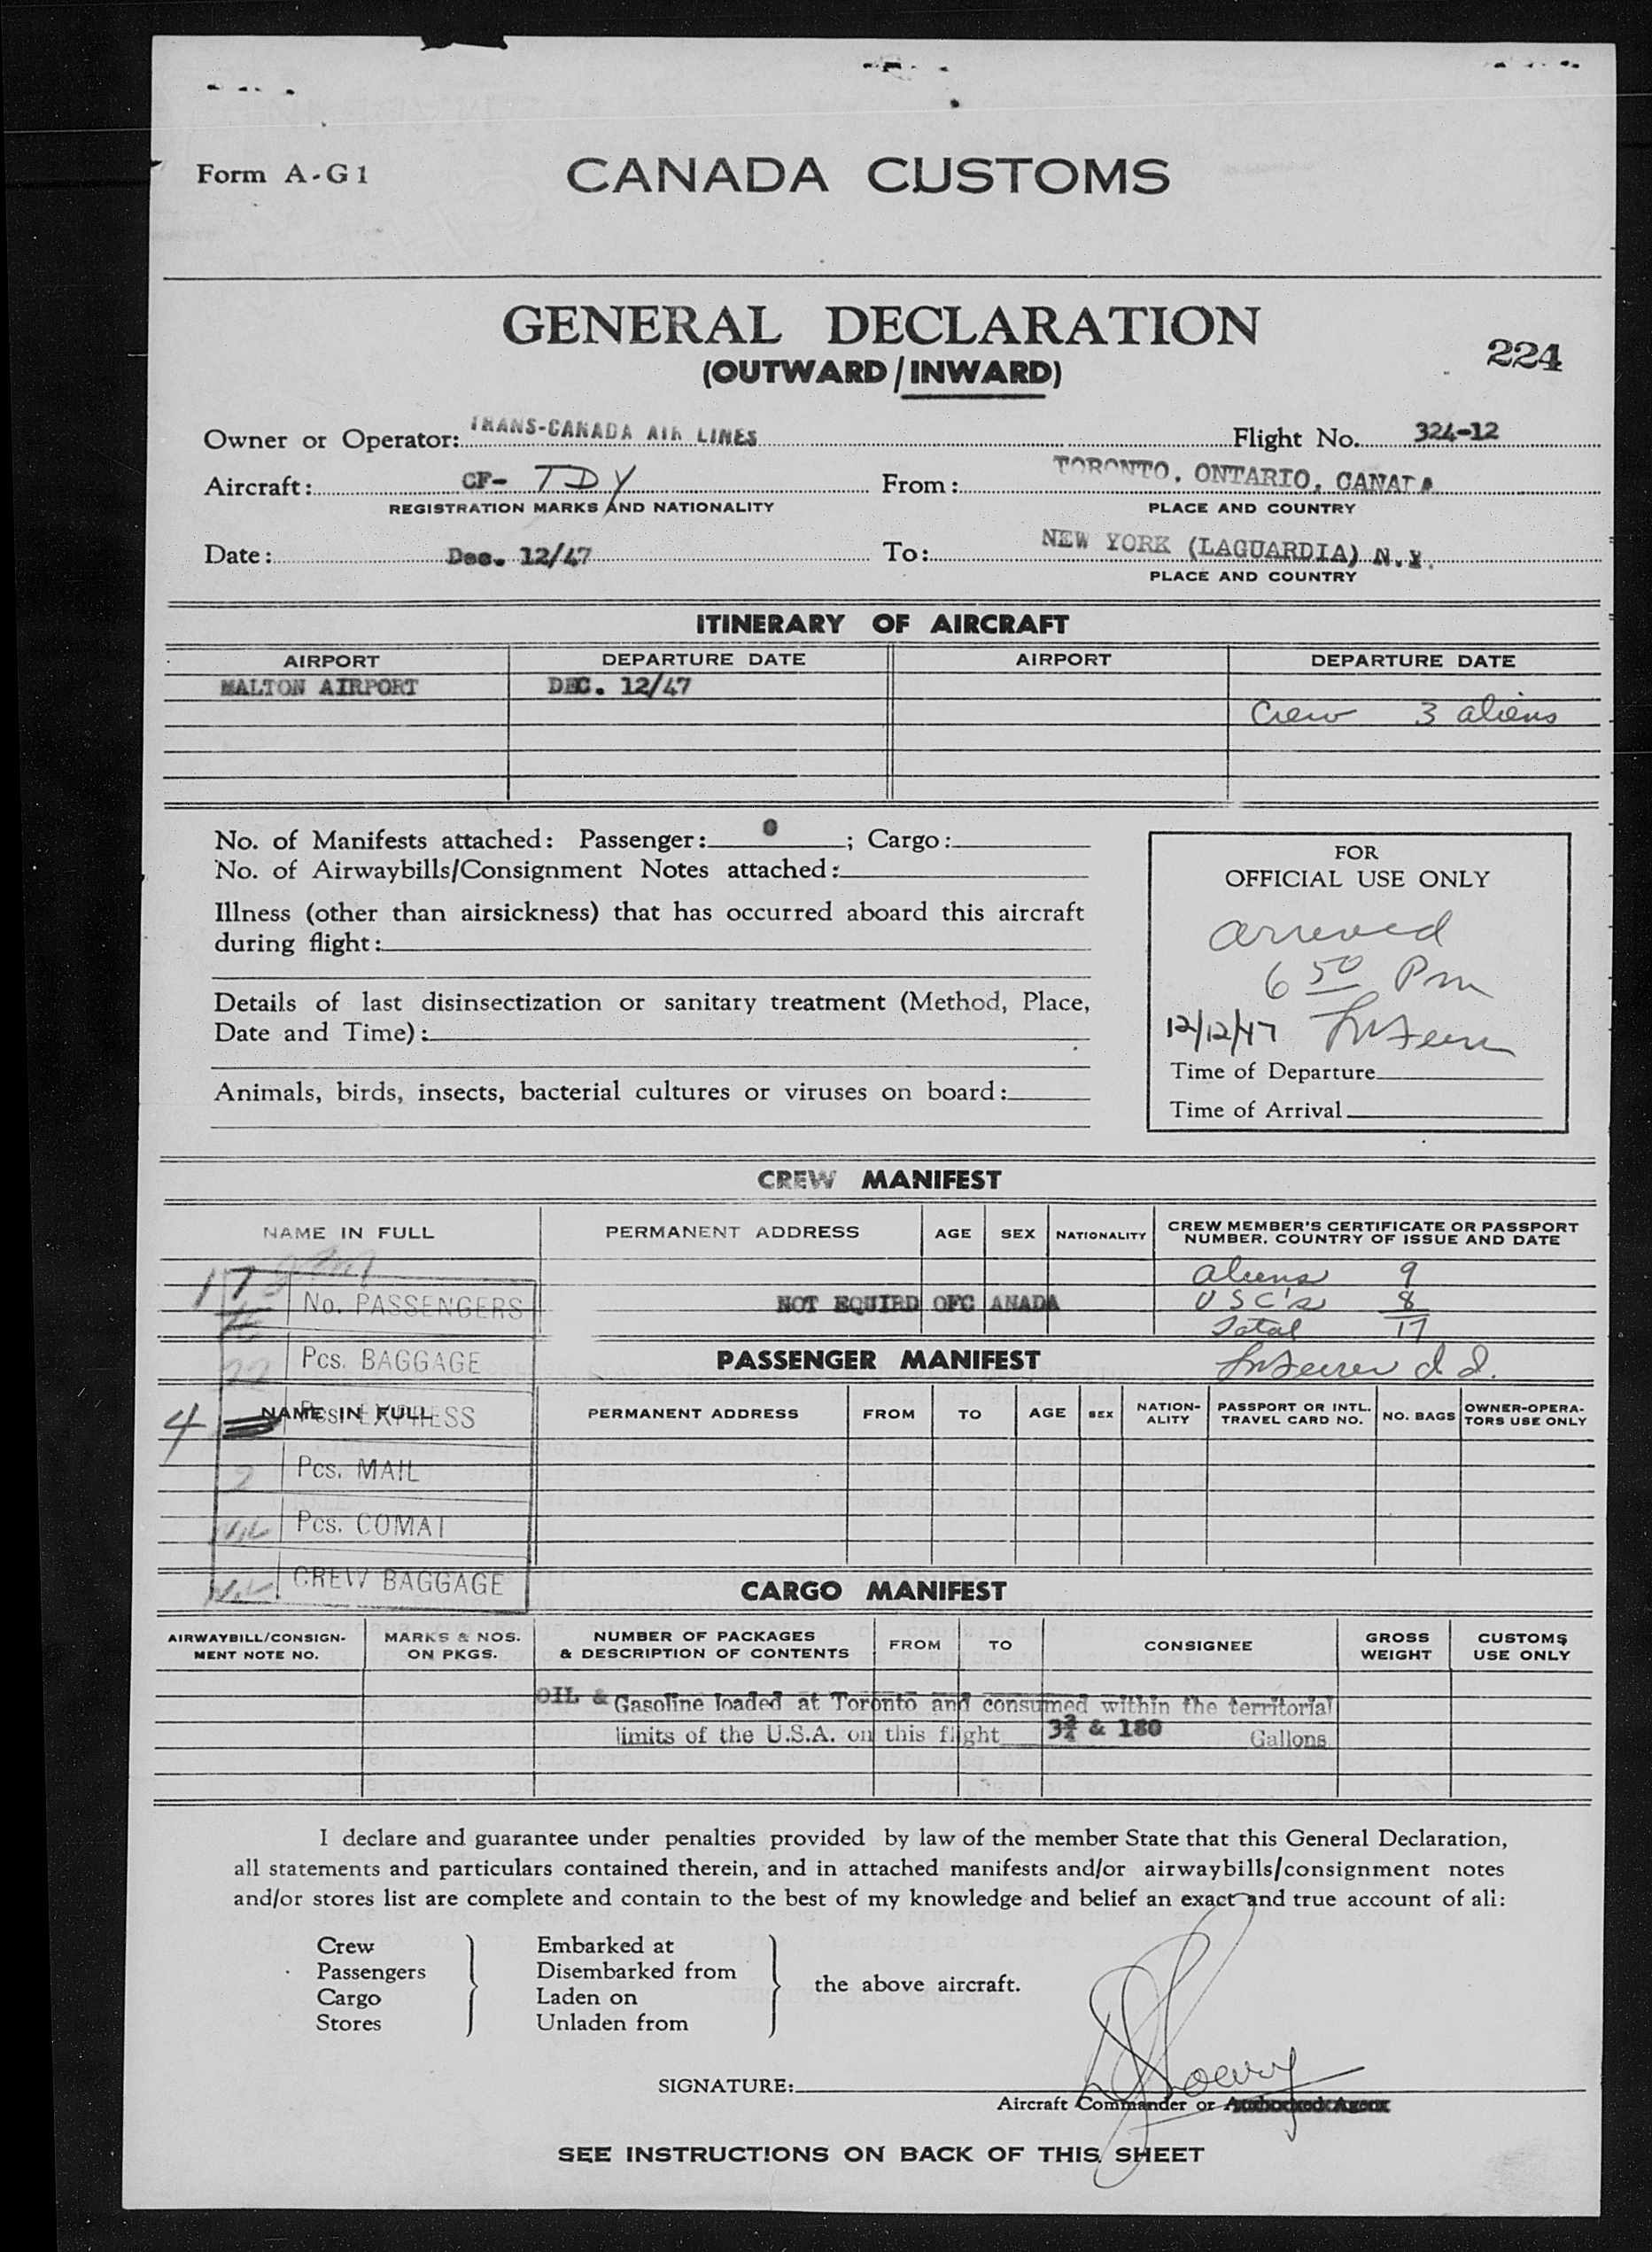 Form A-G1
CANADA CUSTOMS
GENERAL DECLARATION
(OUTWARD/INWARD)
224
Owner or Operator: TRANS-CANADA AIR LINES Flight No. 324-12
Aircraft: CF- TDY From: TORONTO, ONTARIO, CANADA
REGISTRATION MARKS AND NATIONALITY PLACE AND COUNTRY
Date: Dec. 12/47 To: NEW YORK (LAGUARDIA) N.Y.
PLACE AND COUNTRY
ITINERARY OF AIRCRAFT
AIRPORT DEPARTURE DATE AIRPORT DEPARTURE DATE
MALTON AIRPORT DEC. 12/47
Crew 3 aliens
No. of Manifests attached: Passenger: 0 ; Cargo:
No. of Airwaybills/Consignment Notes attached:
Illness (other than airsickness) that has occurred aboard this aircraft
during flight:
Details of last disinsectization or sanitary treatment (Method, Place,
Date and Time):
Animals, birds, insects, bacterial cultures or viruses on board:
FOR
OFFICIAL USE ONLY
arrived
6 50 Pm
12/12/47
Time of Departure
Time of Arrival
CREW MANIFEST
NAME IN FULL PERMANENT ADDRESS AGE SEX NATIONALITY CREW MEMBER'S CERTIFICATE OR PASSPORT
NUMBER, COUNTRY OF ISSUE AND DATE
aliens 9
17 No. PASSENGERS NOT EQUIRD OFC ANADA USC's 8
Total 17
Pcs. BAGGAGE
PASSENGER MANIFEST
NAME IN FULL PERMANENT ADDRESS FROM TO AGE SEX NATION-
ALITY PASSPORT OR INTL.
TRAVEL CARD NO. NO. BAGS OWNER-OPERA-
TORS USE ONLY
4 Pcs. EXPRESS
2 Pcs. MAIL
NIL Pcs. COMAT
NIL CREW BAGGAGE
CARGO MANIFEST
AIRWAYBILL/CONSIGN-
MENT NOTE NO. MARKS & NOS.
ON PKGS. NUMBER OF PACKAGES
& DESCRIPTION OF CONTENTS FROM TO CONSIGNEE GROSS
WEIGHT CUSTOMS
USE ONLY
OIL & Gasoline loaded at Toronto and consumed within the territorial
limits of the U.S.A. on this flight 3¾ & 180 Gallons
I declare and guarantee under penalties provided by law of the member State that this General Declaration,
all statements and particulars contained therein, and in attached manifests and/or airwaybills/consignment notes
and/or stores list are complete and contain to the best of my knowledge and belief an exact and true account of all:
Crew Embarked at
Passengers Disembarked from
the above aircraft.
Cargo Laden on
Stores Unladen from
SIGNATURE:
Aircraft Commander or Authorized Agent
SEE INSTRUCTIONS ON BACK OF THIS SHEET